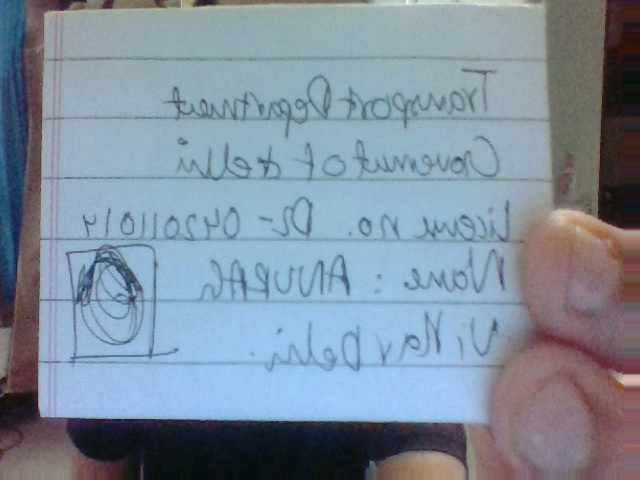 Transport Department
Government of delhi
License no. DL-042011014
Name : ANURAG
Delhi.